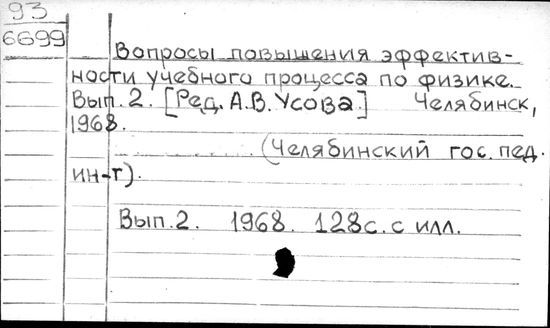 93
6699
Вопросы повышения эффектив-
ности учебного процесса по физике.
Вып. 2. [Ред. А.В. Усова.] Челябинск,
1968.
(Челябинский гос. пед.
ин-т).
Вып. 2. 1968. 128с. с илл.